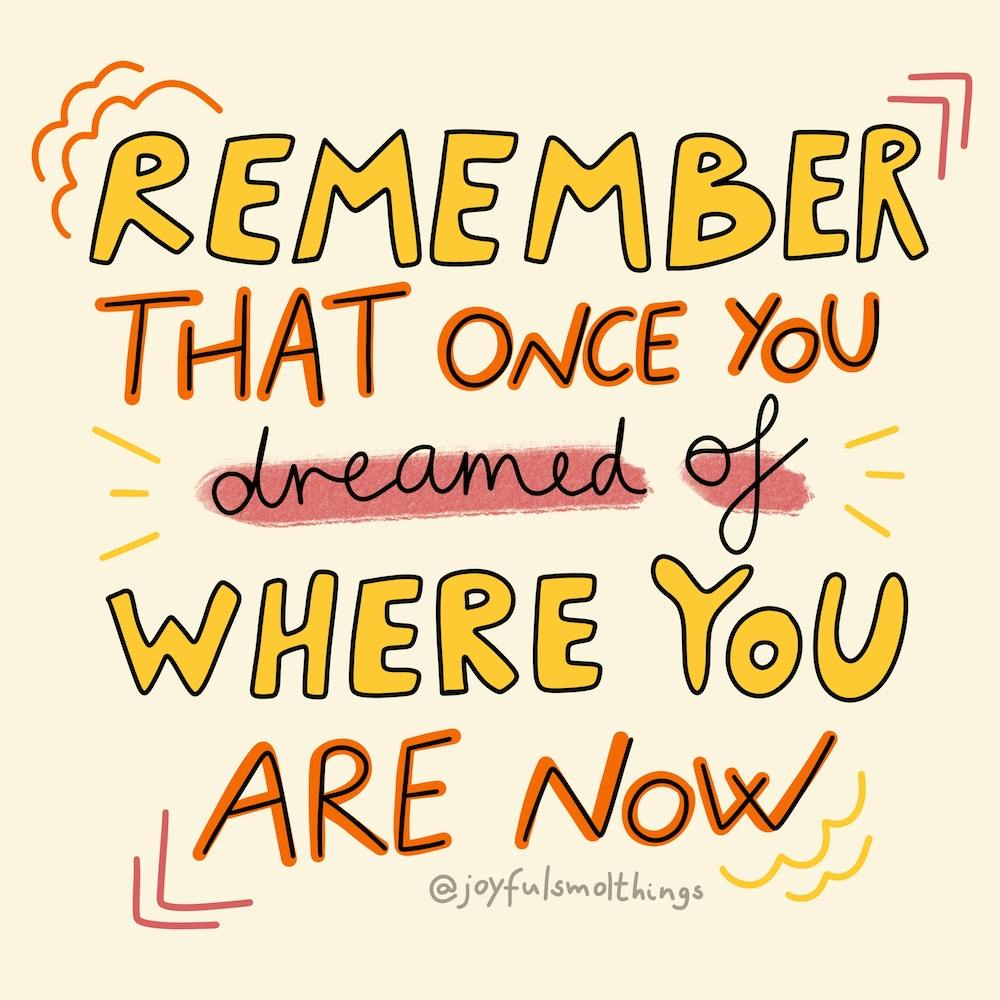 REMEMBER
THAT ONCE YOU
dreamed of
WHERE YOU
ARE NOW
@joyfulsmolthings